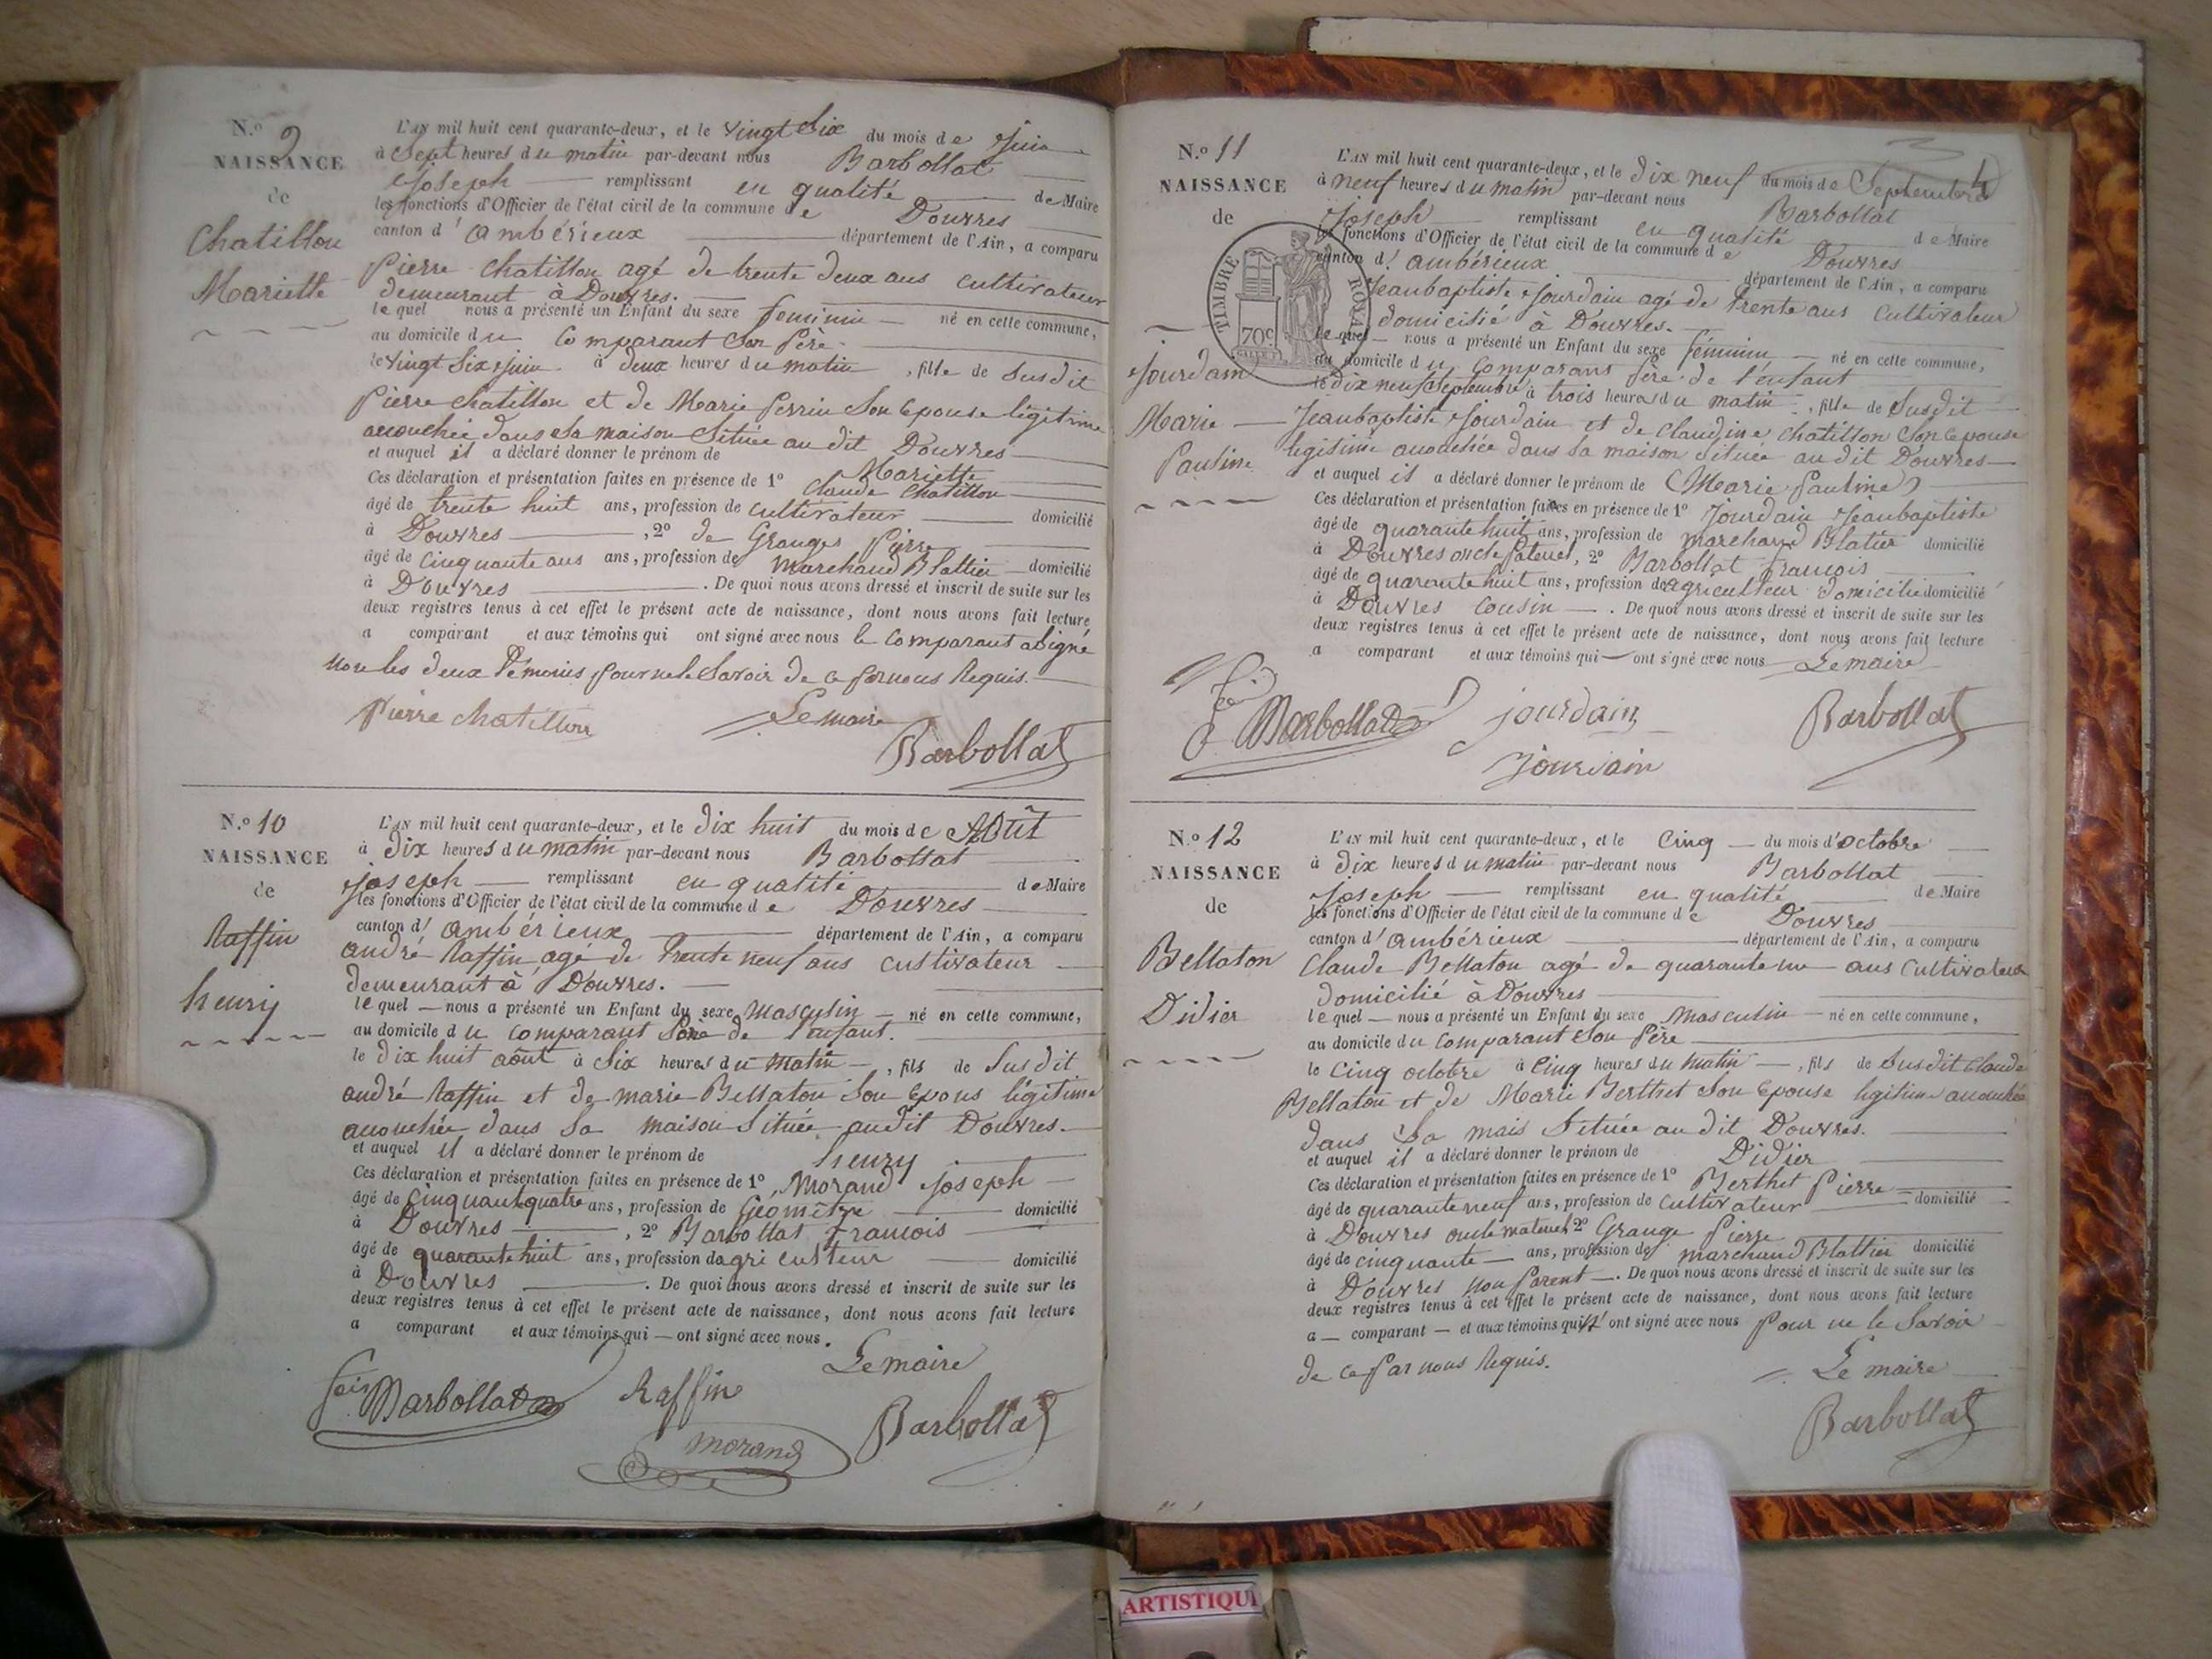 N.o 9
NAISSANCE
de
Chatillon
Mariette
L'AN mil huit cent quarante-deux, et le vingt Six du mois de Juin
à Sept heures du matin par-devant nous Barbollat
Joseph remplissant en qualité de Maire
les fonctions d'Officier de l'état civil de la commune de Douvres
canton d'ambérieux département de l'Ain, a comparu
Pierre Chatillon agé de trente deux ans cultivateur
demeurant à Douvres.
le quel nous a présenté un Enfant du sexe feminin né en cette commune,
au domicile du Comparant Son Père
le vingt Six Juin à deux heures du matin, fille de Susdit
Pierre Chatillon et de Marie Perrin Son Epouse légitime
accouchée dans Sa maison Située au dit Douvres
et auquel il a déclaré donner le prénom de Mariette
Ces déclaration et présentation faites en présence de 1o Claude Chatillon
âgé de trente huit ans, profession de cultivateur domicilié
à Douvres, 2o de Granger Pierre
âgé de Cinquante ans ans, profession de marchand Blattier domicilié
à Douvres. De quoi nous avons dressé et inscrit de suite sur les
deux registres tenus à cet effet le présent acte de naissance, dont nous avons fait lecture
a comparant et aux témoins qui ont signé avec nous le Comparant a Signé
non les deux Témoins pour ne le Savoir de ce par nous Requis.
Pierre chatillon Le maire
Barbollat
N.o 10
NAISSANCE
de
Raffin
henry
L'AN mil huit cent quarante-deux, et le dix huit du mois de Aôut
à dix heures du matin par-devant nous Barbollat
Joseph remplissant en qualité de Maire
les fonctions d'Officier de l'état civil de la commune de Douvres
canton d'ambérieux département de l'Ain, a comparu
andré Raffin agé de Trente neuf ans cultivateur
demeurant à Douvres.
le quel nous a présenté un Enfant du sexe Masculin né en cette commune,
au domicile du comparant Père de l'enfant.
le dix huit aôut à Six heures du matin, fils de Susdit
andré Raffin et de marie Bellaton Son Epous légitime
accouchée dans Sa maison Située audit Douvres.
et auquel il a déclaré donner le prénom de henry
Ces déclaration et présentation faites en présence de 1o Morand Joseph
âgé de Cinquante quatre ans, profession de Géomètre domicilié
à Douvres, 2o Barbollat François
âgé de quarante huit ans, profession dagriculteur domicilié
à Douvres. De quoi nous avons dressé et inscrit de suite sur les
deux registres tenus à cet effet le présent acte de naissance, dont nous avons fait lecture
a comparant et aux témoins qui ont signé avec nous.
Le maire
Barbollat Raffin
morand Barbollat
N.o 11
NAISSANCE
de
Jourdain
Marie
Pauline
TIMBRE ROYAL
70c
L'AN mil huit cent quarante-deux, et le Dix neuf du mois de Septembre
à neuf heures du matin par-devant nous Barbollat
Joseph remplissant en qualité de Maire
les fonctions d'Officier de l'état civil de la commune de Douvres
canton d'ambérieux département de l'Ain, a comparu
Jeanbaptiste Jourdain agé de trente ans Cultivateur
domicilié à Douvres.
le quel nous a présenté un Enfant du sexe féminin né en cette commune,
au domicile du Comparans Père de l'enfant
le dix neuf Septembre à trois heures du matin, fille de Susdit
Jeanbaptiste Jourdain et de Claudine Chatillon Son Epouse
legitime accouchée dans Sa maison Située au dit Douvres
et auquel il a déclaré donner le prénom de (Marie Pauline)
Ces déclaration et présentation faites en présence de 1o Jourdain Jeanbaptiste
âgé de quarante huit ans, profession de marchand Blatier domicilié
à Douvres oncle Paternel, 2o Barbollat François
âgé de quarante huit ans, profession deagriculteur domicilié domicilié
à Douvres Cousin. De quoi nous avons dressé et inscrit de suite sur les
deux registres tenus à cet effet le présent acte de naissance, dont nous avons fait lecture
a comparant et aux témoins qui ont signé avec nous Le maire
Barbollat jourdain Barbollat
Jourdain
N.o 12
NAISSANCE
de
Bellaton
Didier
L'AN mil huit cent quarante-deux, et le Cinq du mois d'octobre
à dix heures du matin par-devant nous Barbollat
Joseph remplissant en qualité de Maire
les fonctions d'Officier de l'état civil de la commune de Douvres
canton d'ambérieux département de l'Ain, a comparu
Claude Bellaton agé de quarante un ans Cultivateur
domicilié à Douvres
le quel nous a présenté un Enfant du sexe Masculin né en cette commune,
au domicile du comparant Son Père
le Cinq octobre à Cinq heures du matin, fils de Susdit Claude
Bellaton et de Marie Berthet Son Epouse légitime accouchée
dans Sa mais Située au dit Douvres.
et auquel il a déclaré donner le prénom de Didier
Ces déclaration et présentation faites en présence de 1o Berthet Pierre
âgé de quarante neuf ans, profession de Cultivateur domicilié
à Douvres oncle maternel 2o Grange Pierre
âgé de cinquante ans, profession de marchand Blattier domicilié
à Douvres non Parent. De quoi nous avons dressé et inscrit de suite sur les
deux registres tenus à cet effet le présent acte de naissance, dont nous avons fait lecture
a comparant et aux témoins qui n' ont signé avec nous Pour ne le Savoir
de ce Par nous Requis. Le maire
Barbollat
ARTISTIQU